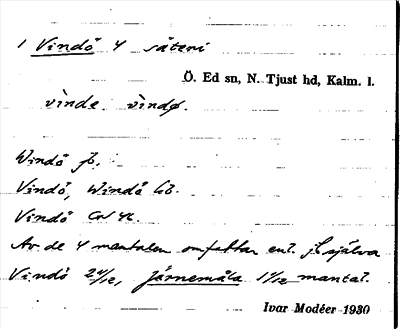 1 Vindö 4 säteri
Ö. Ed sn, N. Tjust hd, Kalm. l.
vìnde. vìndø.
Windö jb.
Vindö, Windö
Vindö GS 4c
Av de 4 mantalen omfattar enl. jb själva
Vindö 2 11/12, Järnemåla 1 1/12 mantal.
Ivar Modéer 1930